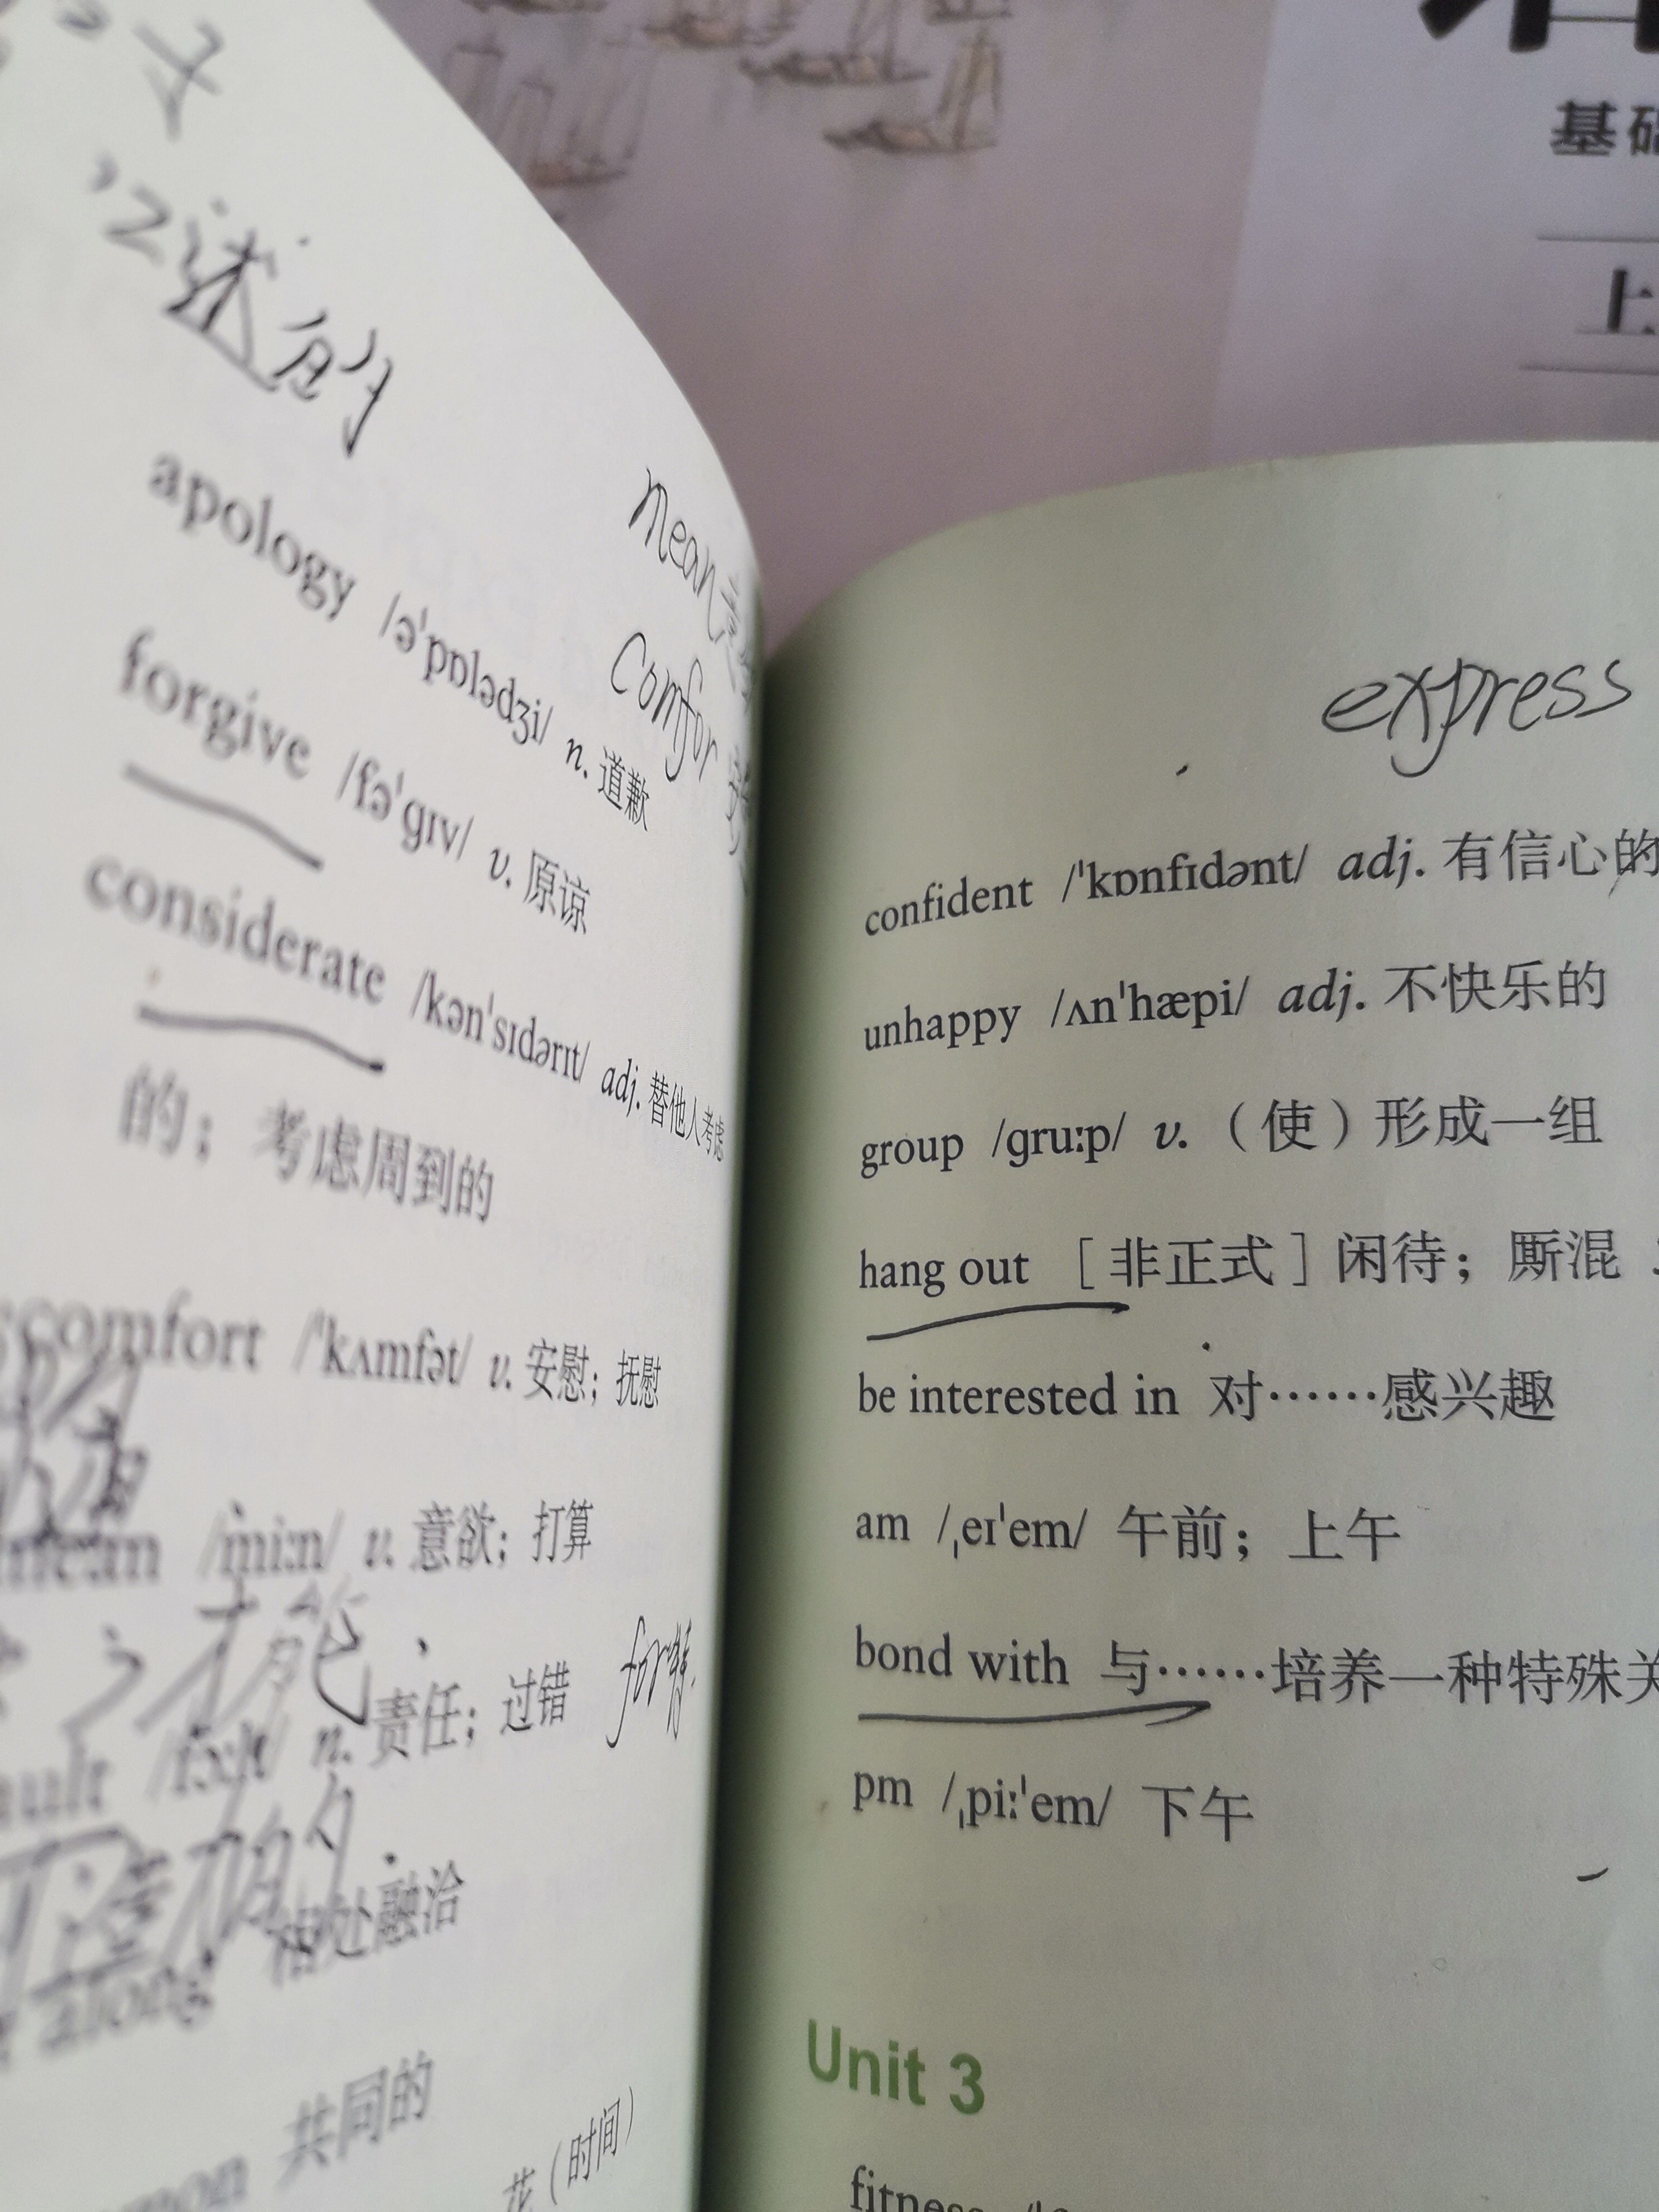 基础
上
述的
apology /ə'pɒlədʒi/ n. 道歉
mean
Comfor
forgive /fə'gɪv/ v. 原谅
considerate /kən'sɪdərɪt/ adj. 替他人考虑
的；考虑周到的
comfort /'kʌmfət/ v. 安慰；抚慰
mean /mi:n/ v. 意欲；打算
n. 责任；过错
for
along 相处融洽
共同的
花（时间）
express
confident /'kɒnfɪdənt/ adj. 有信心的
unhappy /ʌn'hæpi/ adj. 不快乐的
group /gru:p/ v.（使）形成一组
hang out ［非正式］闲待；厮混
be interested in 对……感兴趣
am /ˌeɪ'em/ 午前；上午
bond with 与……培养一种特殊关
pm /ˌpi:'em/ 下午
Unit 3
fitness